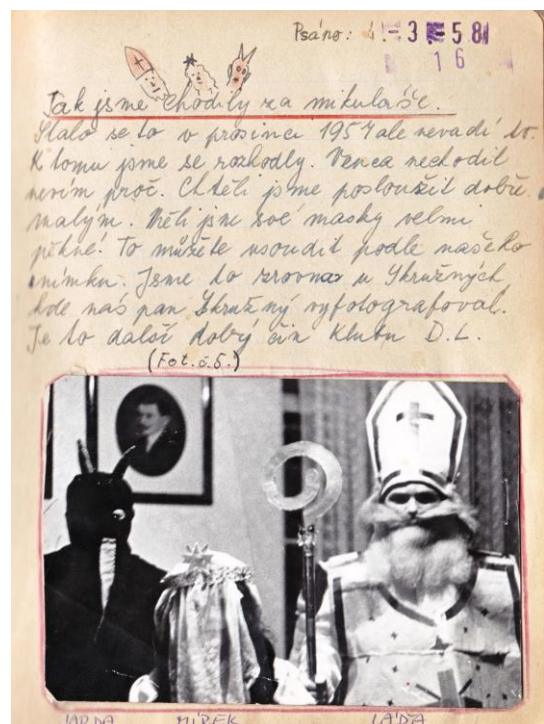 Psáno: 4. -3 58
16
Jak jsme chodily za mikuláše.
Stalo se to v prosinci 1957 ale nevadí to.
K tomu jsme se rozhodly. Venca nechodil
nevím proč. Chtěli jsme posloužit dobře
malým. Měli jsme své masky velmi
pěkné. To můžete usoudit podle našeho
snímku. Jsme to zrovna u Skružných,
kde nás pan Skružný vyfotografoval.
Je to další dobrý čin Klubu D.L.
(Fot.č.5.)
JARDA MÍREK LÁĎA